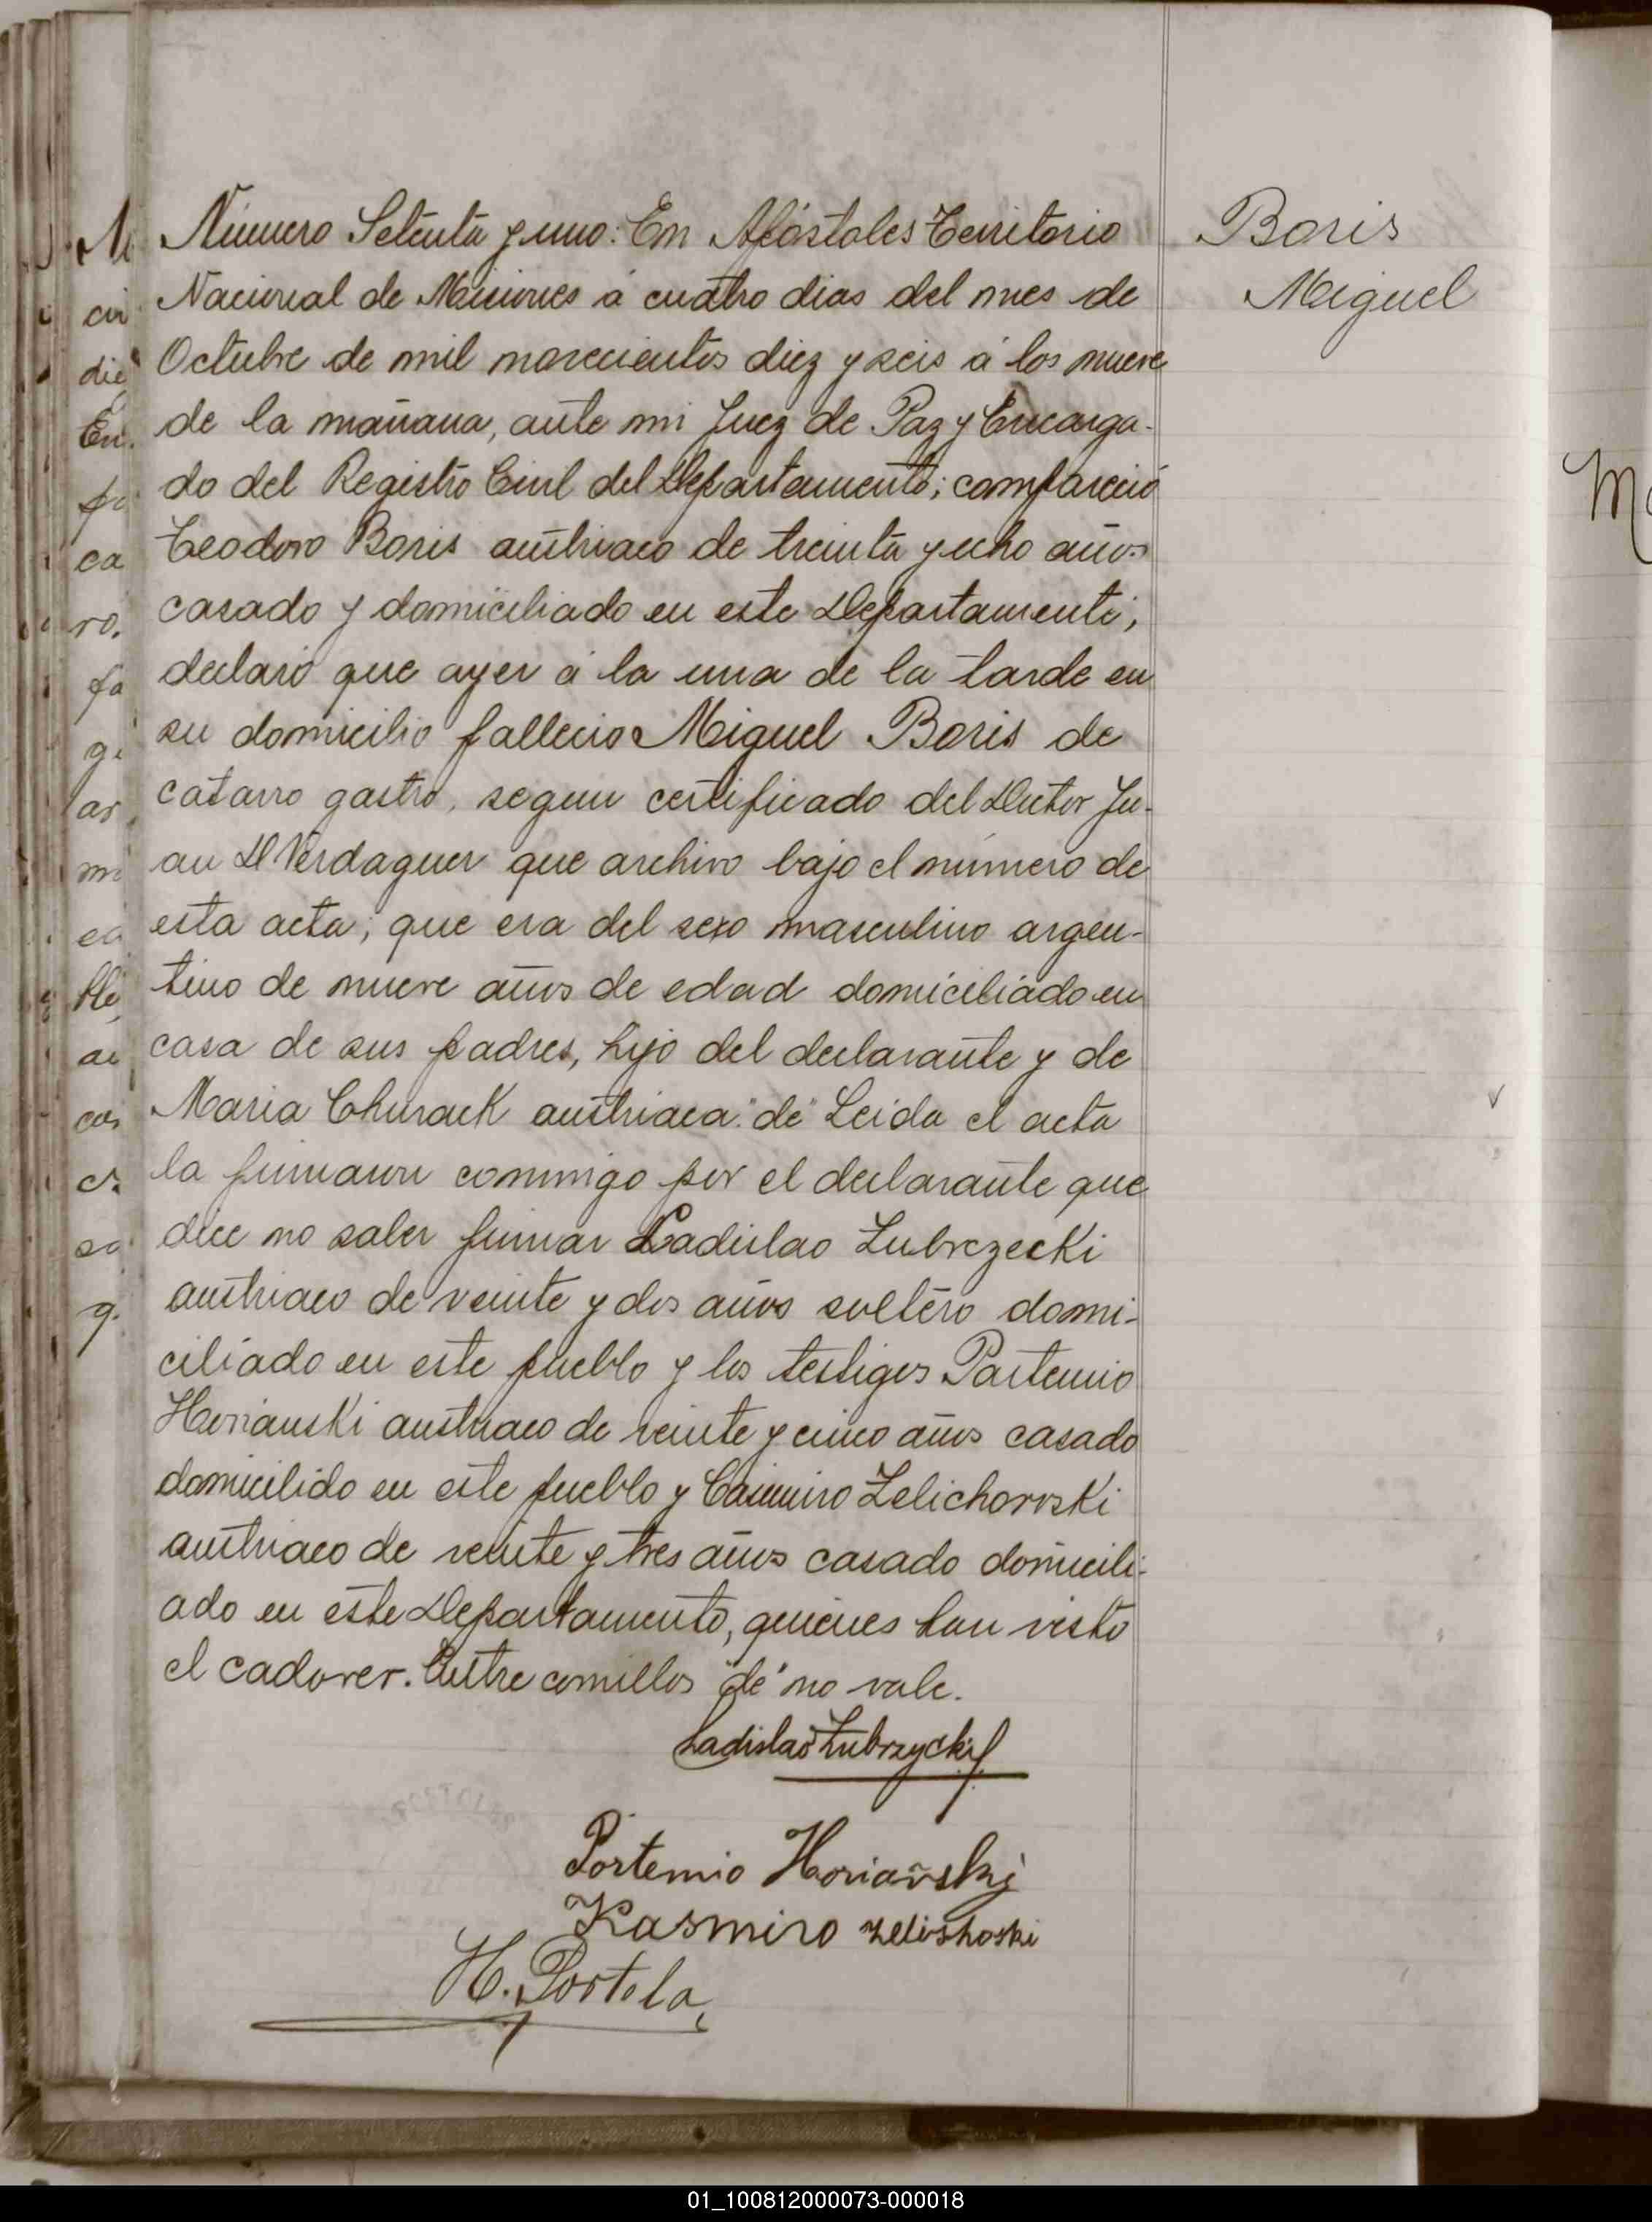 Número Setenta y uno: En Apóstoles Territorio
Nacional de Misiones á cuatro dias del mes de
Octubre de mil novecientos diez y seis á las nueve
de la mañana, ante mi Juez de Paz y Encarga-
do del Registro Civil del Departamento; compareció
Teodoro Boris austriaco de treinta y ocho años
casado y domiciliado en este Departamento;
declaró que ayer á la una de la tarde en
su domicilio fallecio Miguel Boris de
catarro gastro, segun certificado del Doctor Ju-
an D Verdaguer que archivo bajo el número de
esta acta; que era del sexo masculino argen-
tino de nueve años de edad domiciliado en
casa de sus padres, hijo del declarante y de
Maria Churack austriaca "de" Leida el acta
la firmaron conmigo por el declarante que
dice no saber firmar Ladislao Zubrzecki
austriaco de veinte y dos años soltero domi-
ciliado en este pueblo y los testigos Partemio
Horianski austriaco de veinte y cinco años casado
domicilido en este pueblo y Casimiro Zelichovski
austriaco de veinte y tres años casado domicili-
ado en este Departamento, quienes han visto
el cadaver. Entre comillas "de" no vale.
Ladislao Zubrzycki
Portemio Horiański
Kasmiro Zelishoski
H. Portela
Boris
Miguel
01_100812000073-000018